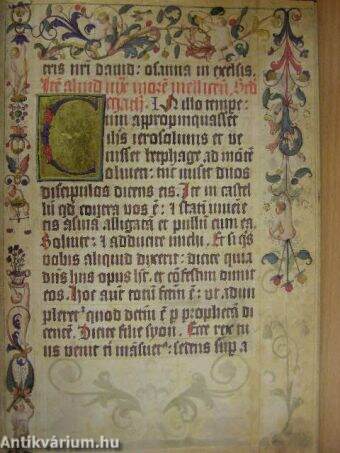 tris nri dauid: osanna in excelsis.
Itē aliud iuxᵉ morē
In illo tempe:
cum apropinquasset
ihs ierosolimis et ve
nisset betphage ad mōtē
oliueti: tūc misit duos
discipulos dicens eis. Ite in castel
lū qd contra vos ē: ⁊ stati inueiē
tis asinā alligatā et pullū cum ea.
Soluite: ⁊ adducite michi. Et si qs
vobis aliquid dixerit: dicite quia
dūs hns opus hēt. et cōfestim dimit
eos. Hoc aut totū fctm ē: ut adim
pleret quod dctm ē p prophetā di
centē. Dicite filie syon. Ecce rex tu
us venit ti māsuet: sedens sup a
Antikvárium.hu